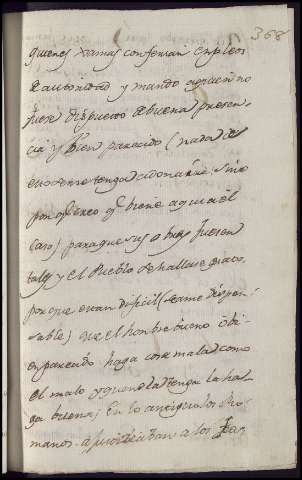 368
quienes Jamas conferian empleos
de autoridad y mando aquien no
fuese dispuesto de buena presen-
cia y bien parecido (nada de
esto se me tenga adonaire, sino
por que creo q.e biene aqui a el
caso) para que sus o fuesen
tales y el Pueblo se hallase grato,
porque eran dificil (seame dispen-
sable) que el honbre bueno o bi-
en parecido haga cosa mala, como
el malo y que no la tenga la ha-
ga buena; En lo antiguo los Ro-
manos a los